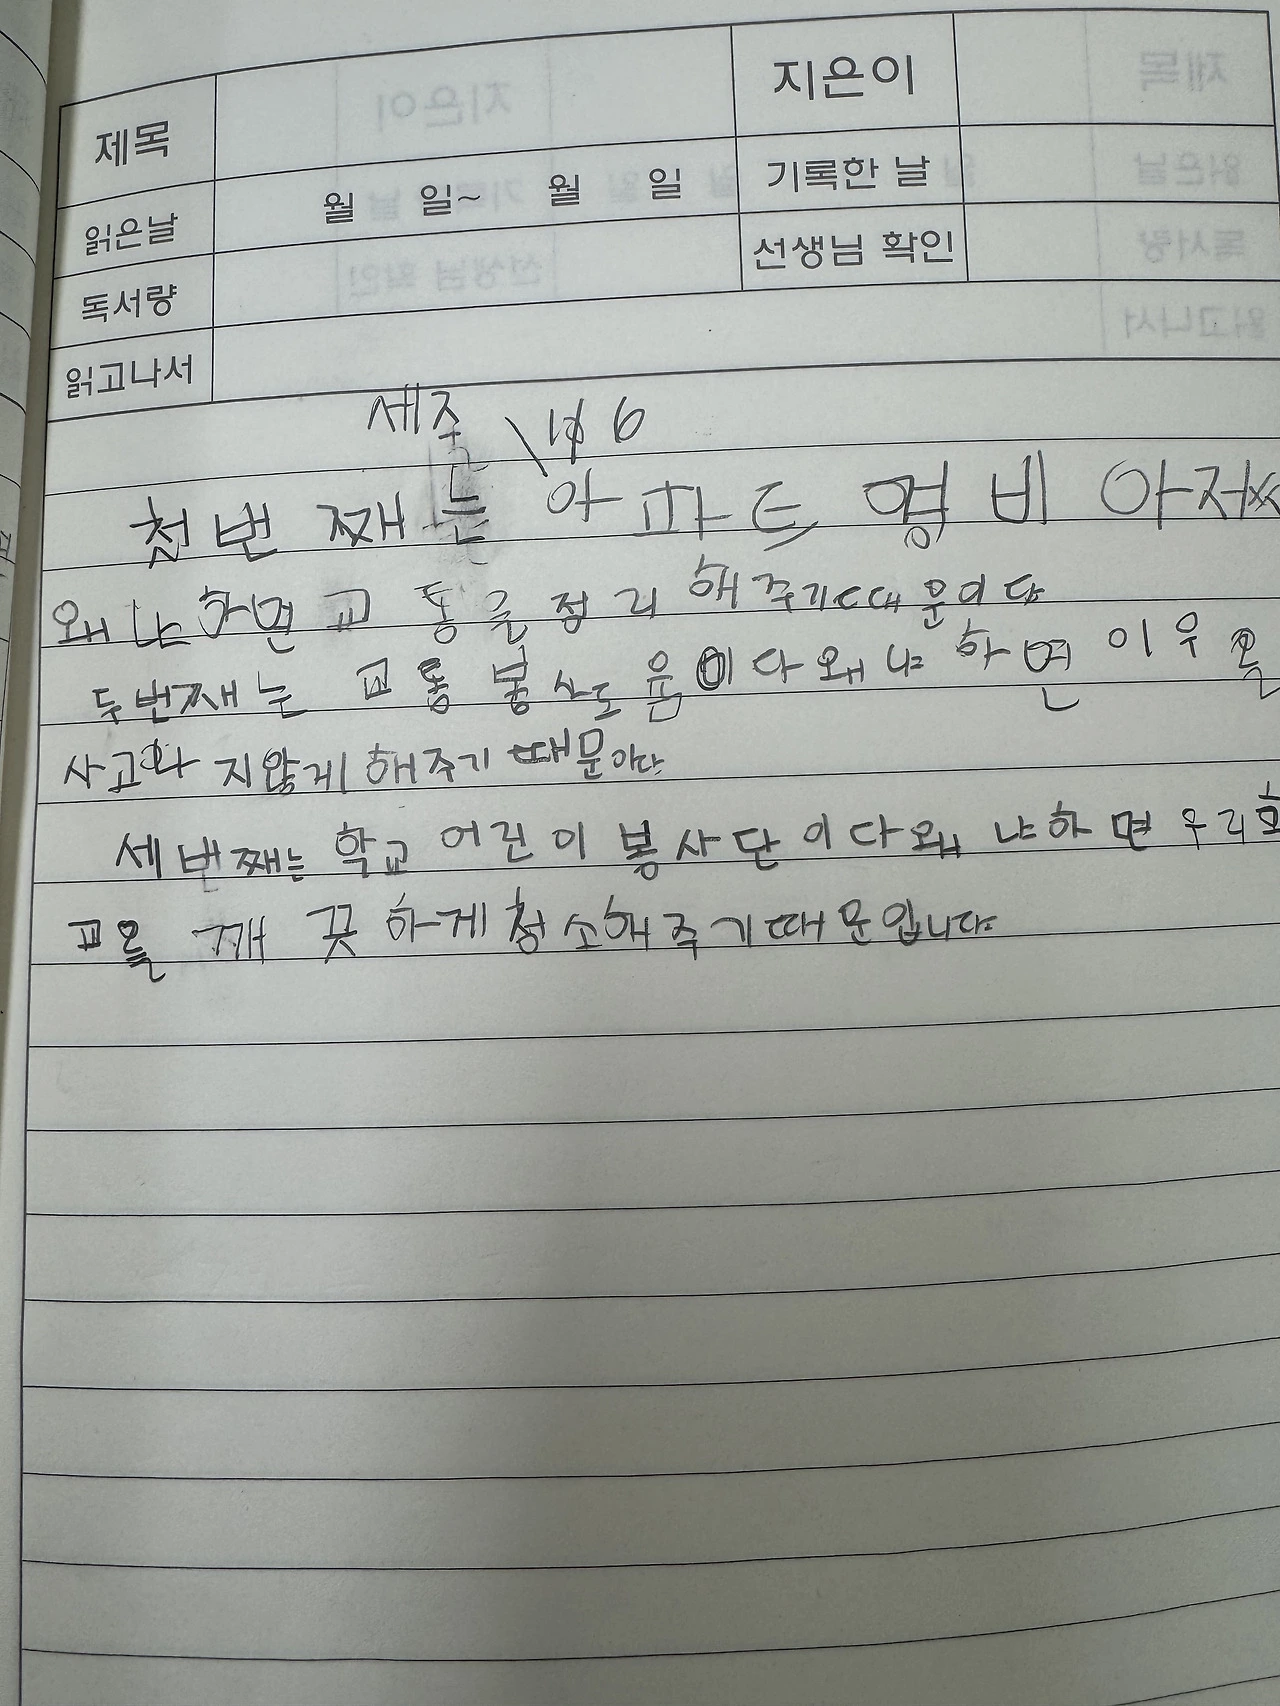 제목 지은이
읽은날 월 일~ 월 일 기록한 날
독서량 선생님 확인
읽고나서
세주
첨번째는 아파트 영비 아저
왜냐하면 교통을정리해주기때문이다
두번째는 교통봉사도윤이다왜냐하면 이우
사고화지않게해주기때문이다
세번째는학교어린이봉사단이다왜냐하면우리
교을 깨끗하게청소해주기때문입니다